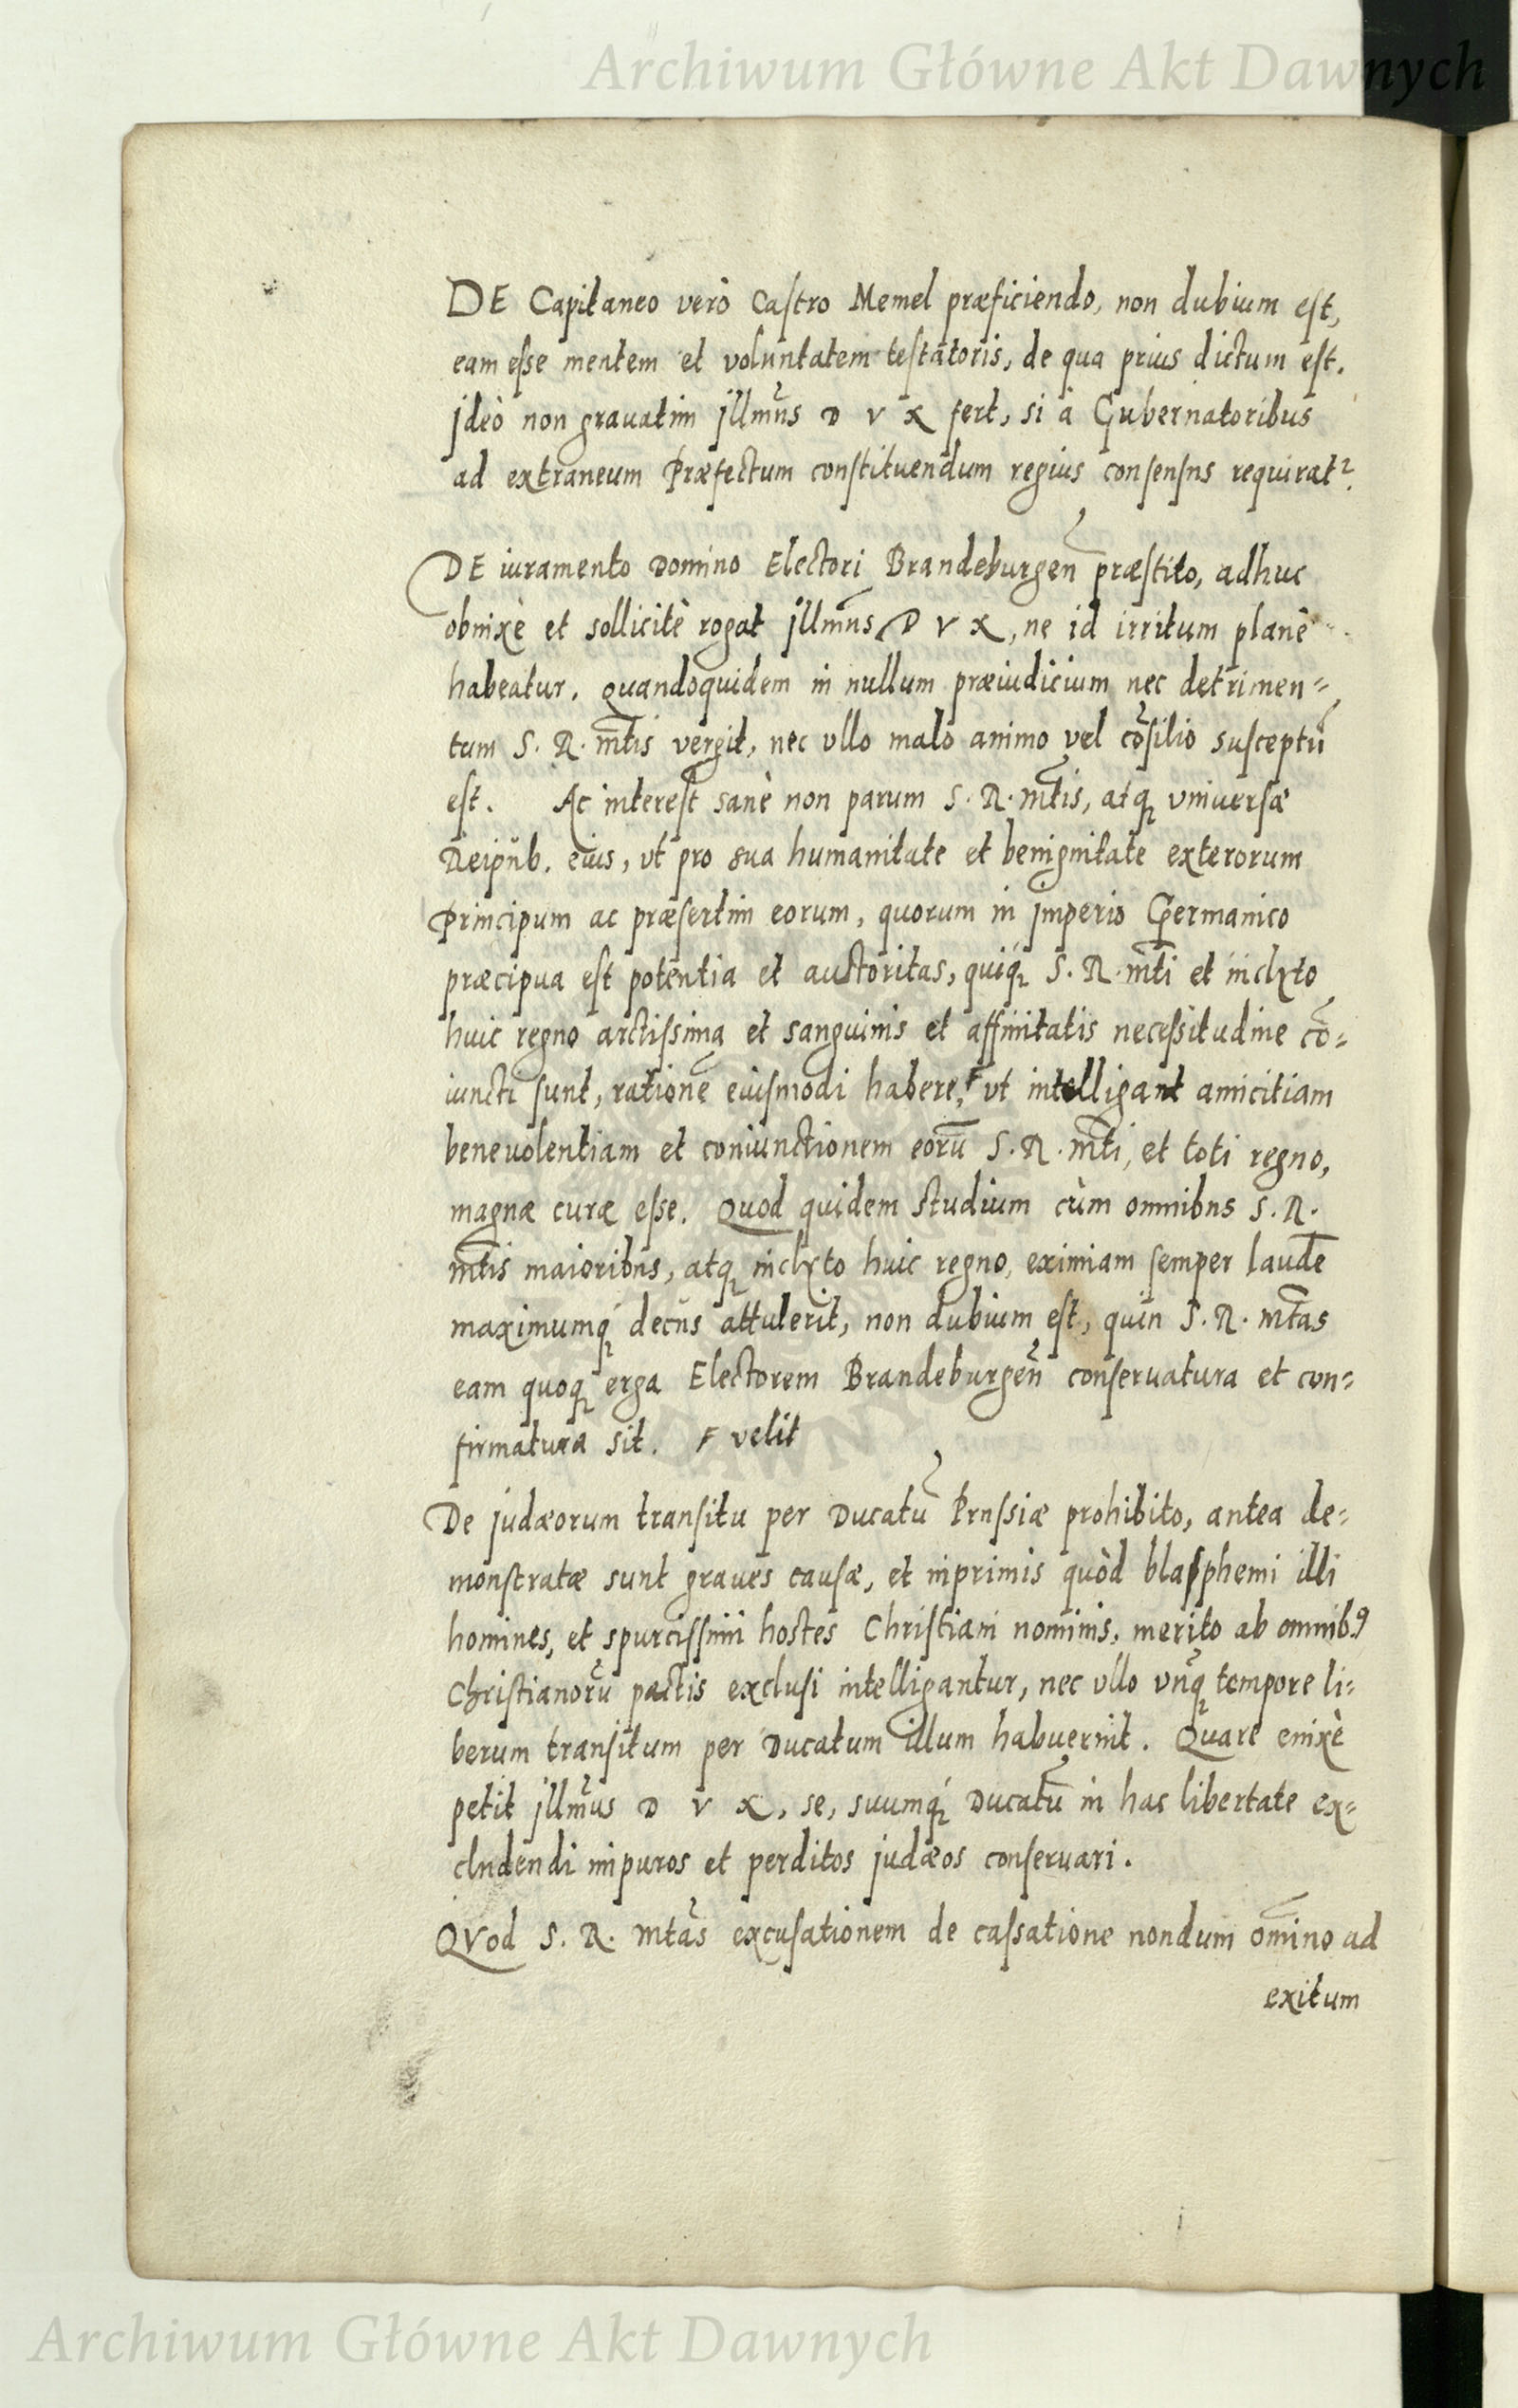 Archiwum Główne Akt Dawnych
DE Capitaneo verò Castro Memel præficiendo, non dubium est,
eam esse mentem et voluntatem testatoris, de qua prius dictum est.
jdeò non grauatim jllm̃us D V X fert, si à Gubernatoribus
ad extraneum Præfectum constituendum regius consensus requirat᷑.
DE iuramento Domino Electori Brandeburgeñ præstito, adhuc
obnixè et sollicitè rogat jllm̃us D V X, ne id irritum planè
habeatur. quandoquidem in nullum præiudicium nec detrimen=
tum S. R. m̃tis vergit, nec vllo malo animo vel cõsilio susceptũ
est. Ac interest sanè non parum S. R. m̃tis, atq́ vniuersæ
Reipub. eius, vt pro sua humanitate et benignitate exterorum
Principum ac præsertim eorum, quorum in jmperio Germanico
præcipua est potentia et auctoritas, quiq́ S. R. m̃ti et inclyto
huic regno arctissima et sanguinis et affinitatis necessitudine cõ=
iuncti sunt, rationẽ eiusmodi habere,F vt intelligant amicitiam
beneuolentiam et coniunctionem eorũ S. R. m̃ti, et toti regno,
magnæ curæ esse. Quod quidem studium cùm omnibus S. R.
m̃tis maioribus, atq́ inclyto huic regno, eximiam semper laudẽ
maximumq́ decus attulerit, non dubium est, quin S. R. m̃tas
eam quoq́ erga Electorem Brandeburgeñ conseruatura et con=
firmatura sit. F velit
De judæorum transitu per Ducatũ Prussiæ prohibito, antea de=
monstratæ sunt graues causæ, et inprimis quòd blasphemi illi
homines, et spurcissimi hostes Christiani nominis, merito ab omnib9
Christianorũ pactis exclusi intelligantur, nec vllo vnq̃ tempore li=
berum transitum per Ducatum illum habuerint. Quare enixè
petit jllm̃us D V X, se, suumq́ Ducatũ in hac libertate ex=
cludendi impuros et perditos judæos conseruari.
QVod S. R. m̃tas excusationem de cassatione nondum om̃ino ad
exitum
Archiwum Główne Akt Dawnych